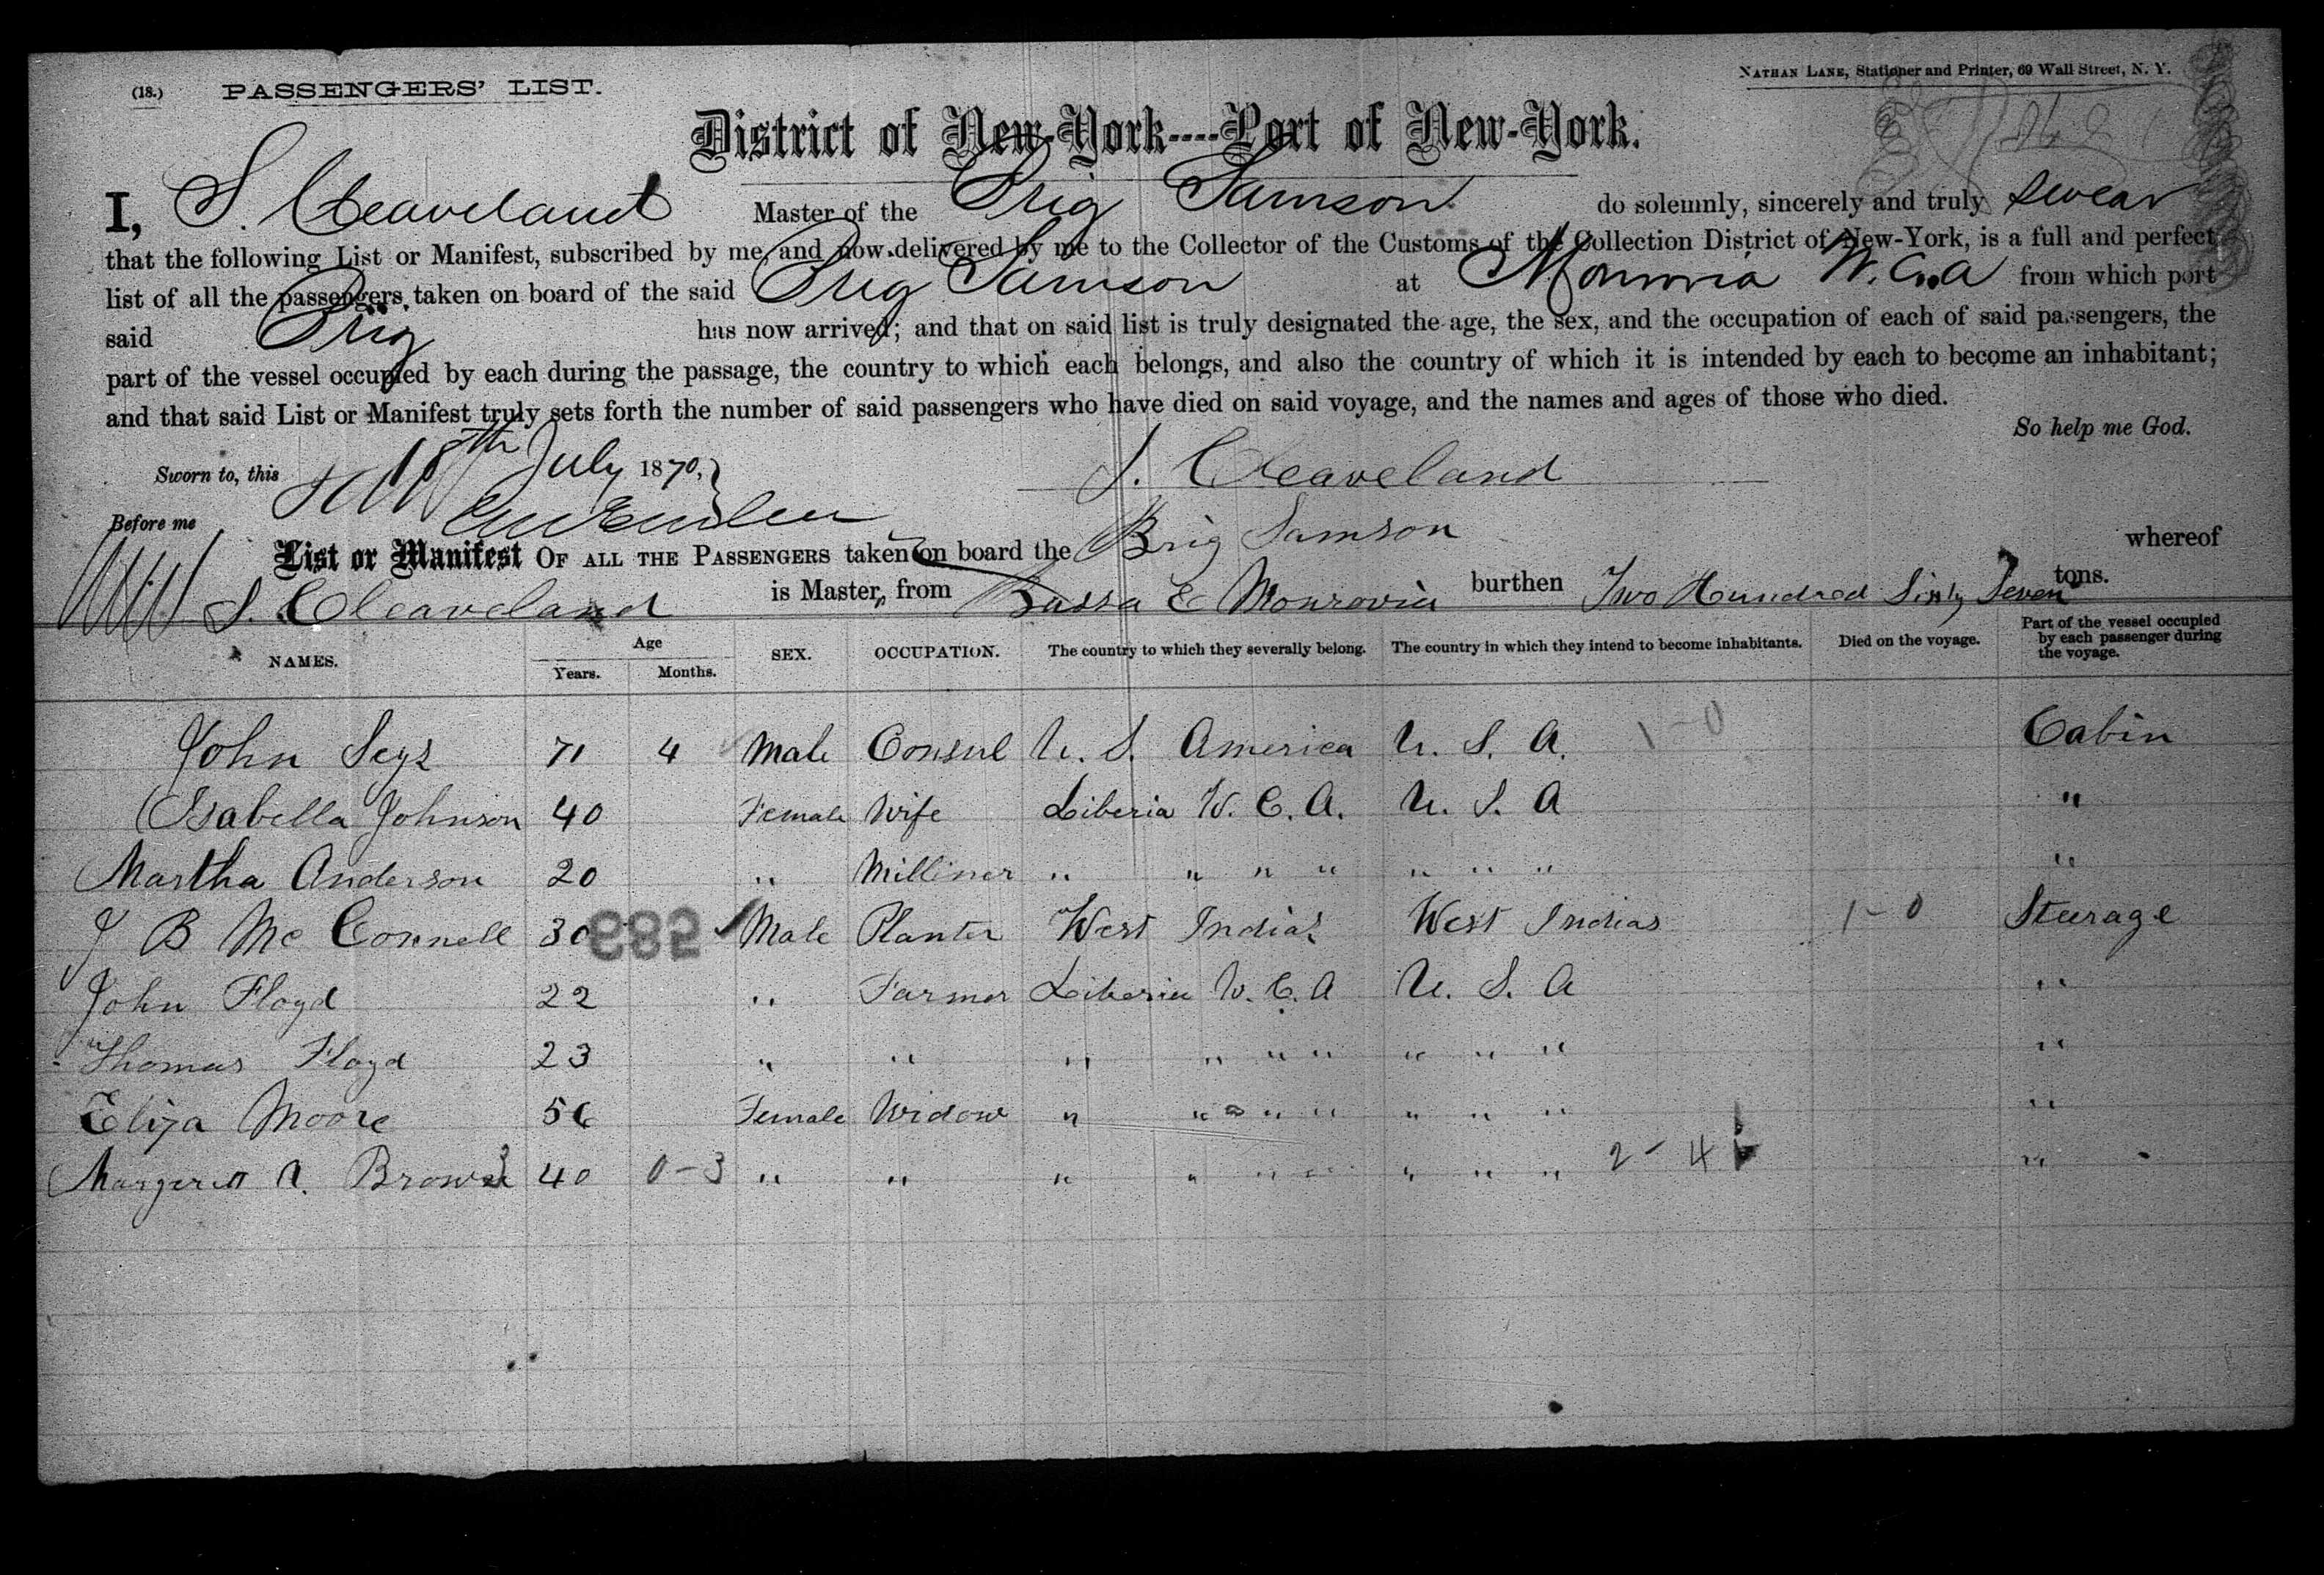 (18.) PASSENGERS' LIST.
NATHAN LANE, Stationer and Printer, 69 Wall Street, N. Y.
District of New-York----Port of New-York.
I, S. Cleaveland Master of the Brig Samson do solemnly, sincerely and truly swear
that the following List or Manifest, subscribed by me, and now delivered by me to the Collector of the Customs of the Collection District of New-York, is a full and perfect
list of all the passengers taken on board of the said Brig Samson at Monrovia W.C.A from which port
said Brig has now arrived; and that on said list is truly designated the age, the sex, and the occupation of each of said passengers, the
part of the vessel occupied by each during the passage, the country to which each belongs, and also the country of which it is intended by each to become an inhabitant;
and that said List or Manifest truly sets forth the number of said passengers who have died on said voyage, and the names and ages of those who died.
So help me God.
Sworn to, this 18th July 1870, S. Cleaveland
Before me
List or Manifest OF ALL THE PASSENGERS taken on board the Brig Samson whereof
S. Cleaveland is Master, from Bassa & Monrovia burthen Two Hundred Sixty Seven tons.
NAMES. Age Years. Months. SEX. OCCUPATION. The country to which they severally belong. The country in which they intend to become inhabitants. Died on the voyage. Part of the vessel occupied by each passenger during the voyage.
John Seys 71 4 Male Consul U. S. America U. S. A. 1-0 Cabin
Isabella Johnson 40 Female Wife Liberia W. C. A. U. S. A "
Martha Anderson 20 " Milliner " " " " " " " "
J B Mc Connell 30 583 Male Planter West Indias West Indias 1-0 Steerage
John Floyd 22 " Farmer Liberia W. C. A U. S. A "
Thomas Floyd 23 " " " " " " " " " "
Eliza Moore 56 Female Widow " " " " " " " "
Margerett A. Brown 40 0-3 " " " " " " " " " 2-4 "